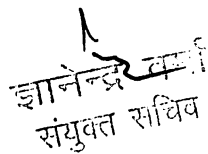 ज्ञानेन्द्र वर्मा
संयुक्त सचिव